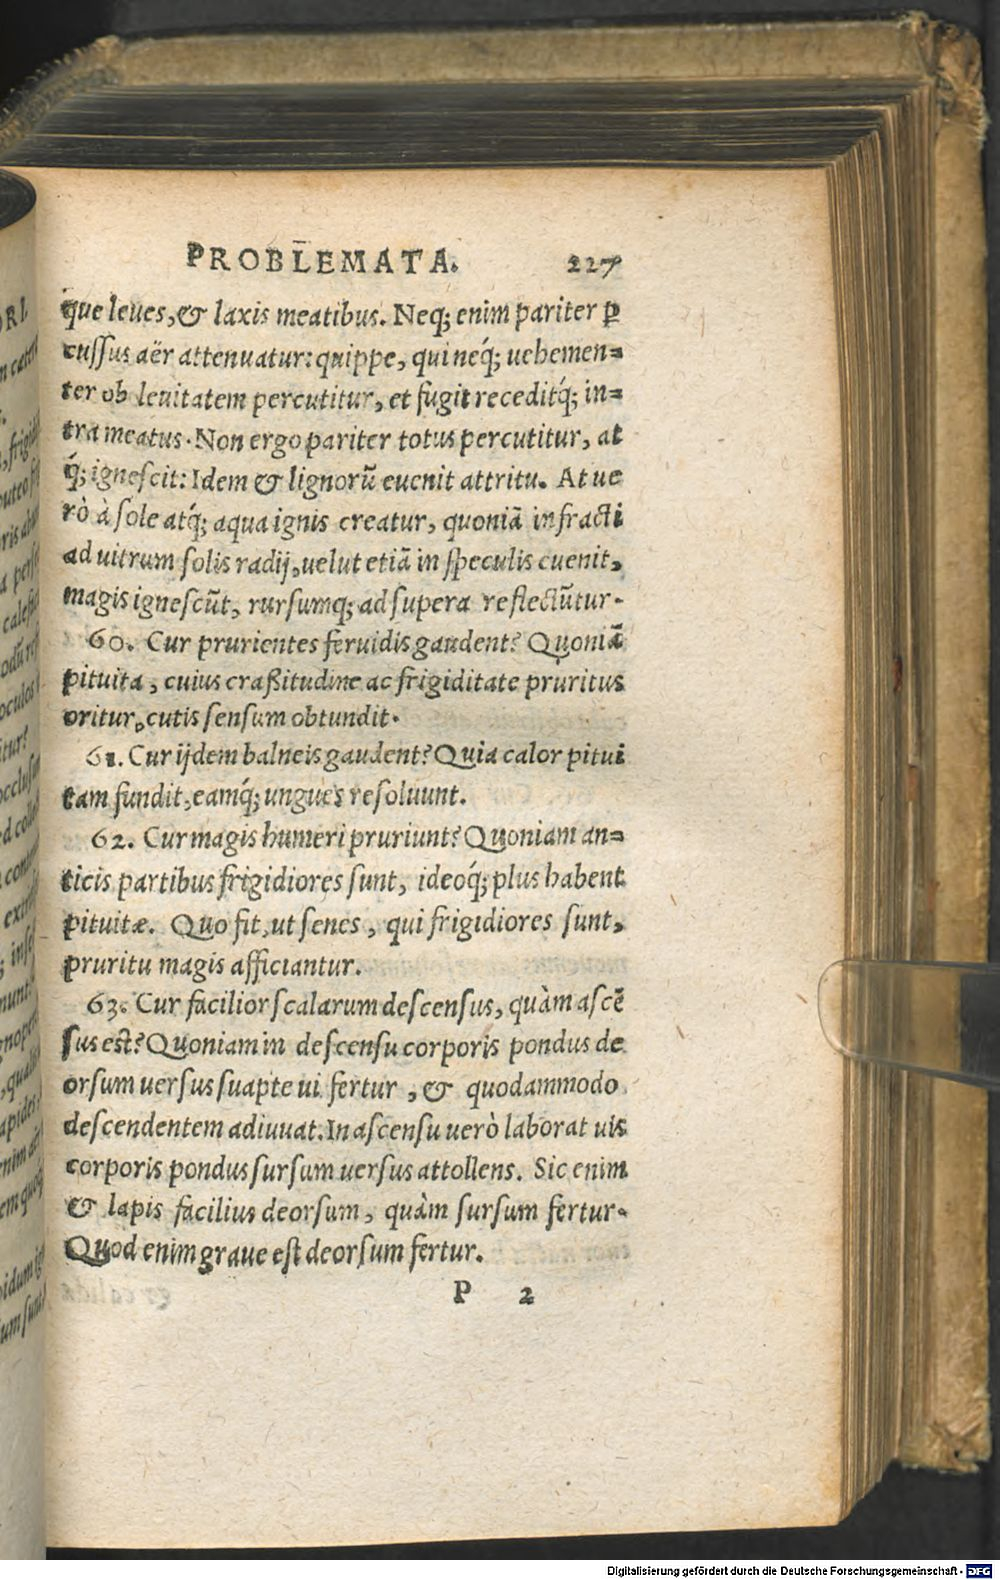 PROBLEMATA. 227
que leues, & laxis meatibus. Neq; enim pariter ꝑ
cussus aër attenuatur: quippe, qui neq́; uehemen=
ter ob leuitatem percutitur, et fugit receditq́; in=
tra meatus. Non ergo pariter totus percutitur, at
q́; ignescit: Idem & lignorũ euenit attritu. At ue
rò à sole atq́; aqua ignis creatur, quoniã infracti
ad uitrum solis radij, uelut etiã in speculis euenit,
magis ignescũt, rursumq; ad supera reflectũtur.
60. Cur prurientes feruidis gaudent? Quoniã
pituita, cuius craßitudine ac frigiditate pruritus
oritur, cutis sensum obtundit.
61. Cur ijdem balneis gaudent? Quia calor pitui
tam fundit, eamq́; ungues resoluunt.
62. Cur magis humeri pruriunt? Quoniam an=
ticis partibus frigidiores sunt, ideoq́; plus habent
pituitæ. Quo fit, ut senes, qui frigidiores sunt,
pruritu magis afficiantur.
63. Cur facilior scalarum descensus, quàm ascẽ
sus est? Quoniam in descensu corporis pondus de
orsum uersus suapte ui fertur, & quodammodo
descendentem adiuuat. In ascensu uerò laborat uis
corporis pondus sursum uersus attollens. Sic enim
& lapis facilius deorsum, quàm sursum fertur.
Quod enim graue est deorsum fertur.
P 2
Digitalisierung gefördert durch die Deutsche Forschungsgemeinschaft - DFG